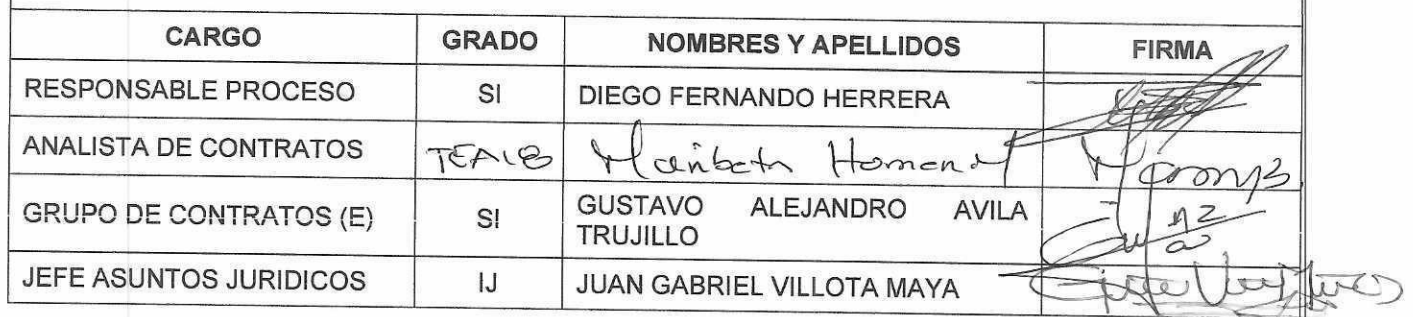 CARGO GRADO NOMBRES Y APELLIDOS FIRMA
RESPONSABLE PROCESO SI DIEGO FERNANDO HERRERA
ANALISTA DE CONTRATOS
GRUPO DE CONTRATOS (E) SI GUSTAVO ALEJANDRO AVILA
TRUJILLO
JEFE ASUNTOS JURIDICOS IJ JUAN GABRIEL VILLOTA MAYA